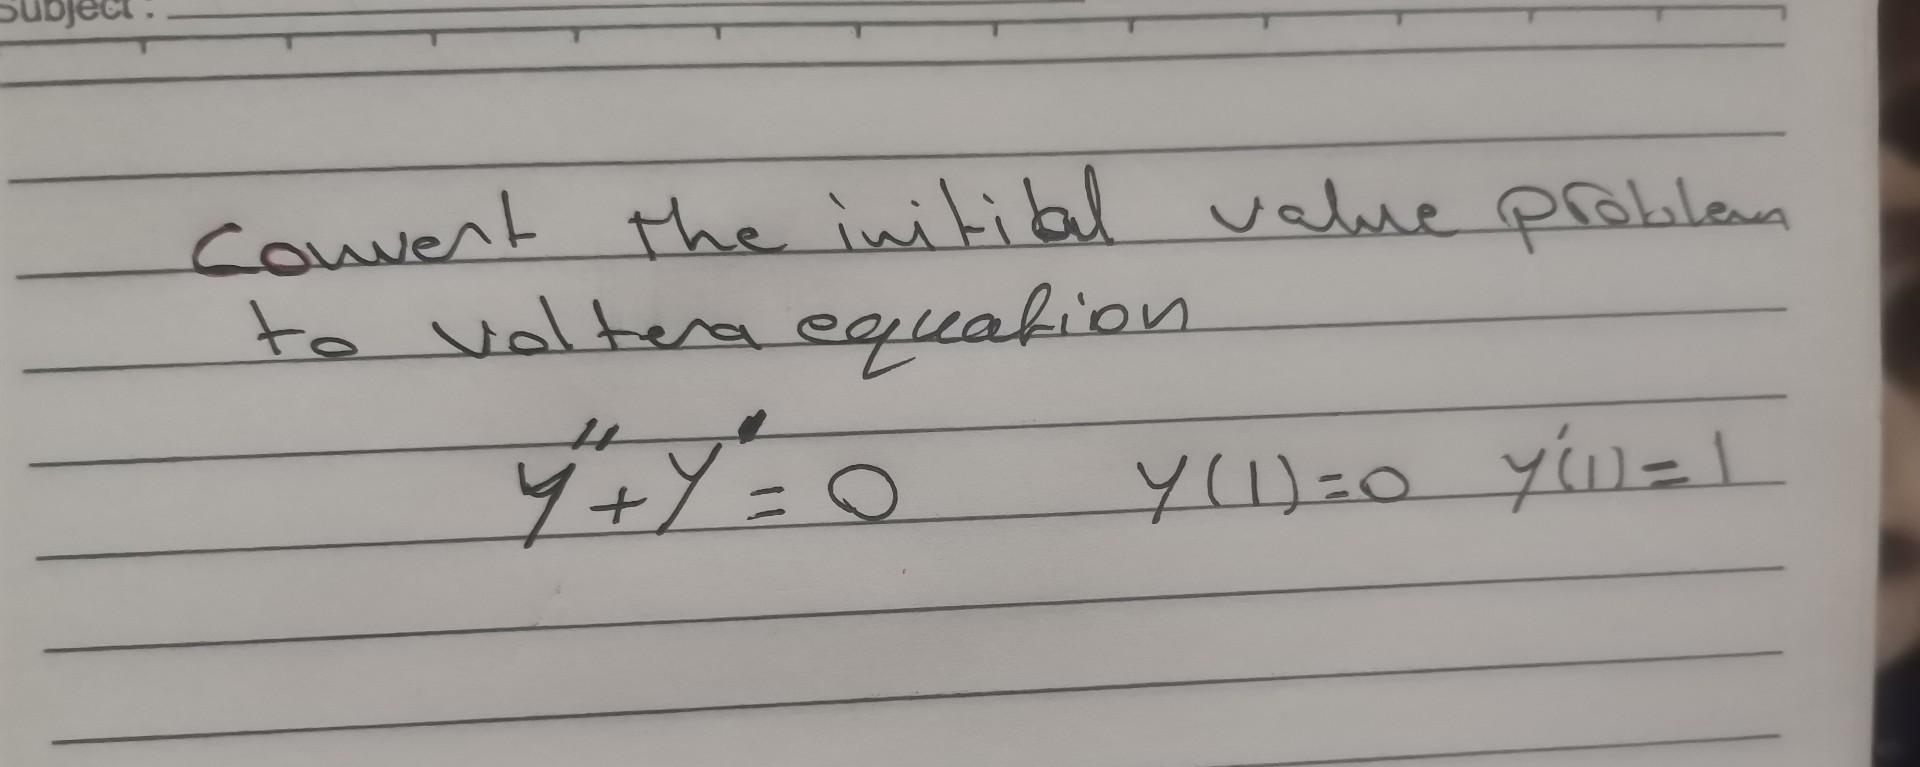 Subject :
Convert the initial value problem
to voltera equation
y'' + y' = 0 y(1)=0 y'(1)=1